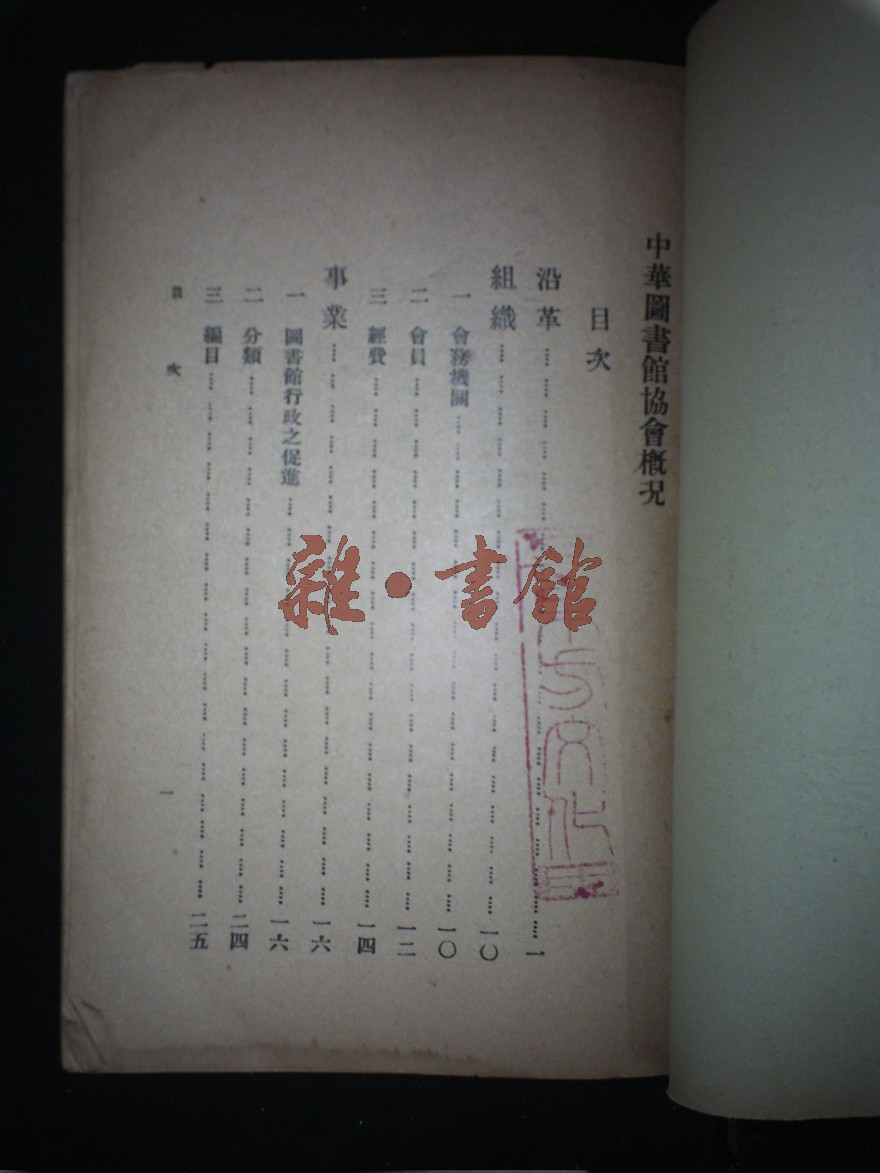 中華圖書館協會概況
目次
沿革 …… 一
組織 …… 一〇
一 會務機關 …… 一〇
二 會員 …… 一二
三 經費 …… 一四
事業 …… 一六
一 圖書館行政之促進 …… 一六
二 分類 …… 二四
三 編目 …… 二五
目次 一
雜·書館